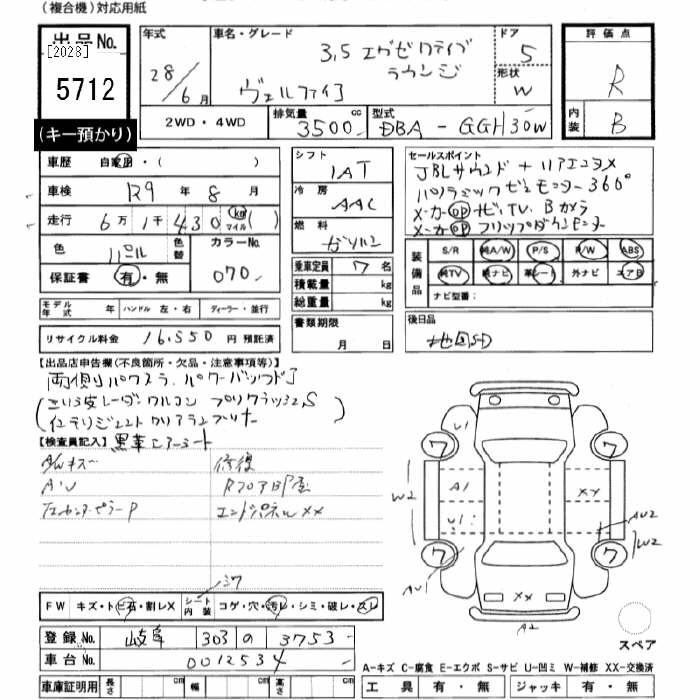 (複合機)対応用紙
出品No.
[2028]
5712
(キー預かり)
年式
28/6月
車名・グレード
3,5 エグゼクティブ
ラウンジ
ヴェルファイア
ドア
5
形状
W
評価点
R
内装
B
2WD・4WD
排気量
3500 cc
型式
DBA - GGH30W
車歴 自家用・( )
車検 R9 年 8 月
走行 6万1千430 km マイル ( )
色 パール
色替
カラーNo.
070
保証書 有・無
モデル年式 年 ハンドル 左・右 ディーラー・並行
リサイクル料金 16,550 円 預託済
シフト
IAT
冷房
AAC
燃料
ガソリン
乗車定員 7 名
積載量 kg
総重量 kg
書類期限
月 日
セールスポイント
JBLサウンド + リアエンタメ
パノラミックビューモニター 360°
メーカーOP ナビ.TV. Bカメラ
メーカーOP フリップダウンモニター
装備品
S/R 純A/W P/S P/W ABS
純TV 純ナビ 革シート 外ナビ エアB
ナビ型番:
後日品
地図SD
【出品店申告欄(不良箇所・欠品・注意事項等)】
両側パワスラ. パワーバックドア
インテリジェントクリアランスソナー
【検査員記入】黒革エアーシート
A/Wキズ
AU
左センターピラーP
修復
Rフロア部屋
エンドパネルXX
FW キズ・ト ビ石・割レX
シート内装 コゲ・穴・汚レ・シミ・破レ・スレ
登録No. 岐阜 303 の 3753
車台No. 0012534
車庫証明用 長さ cm 幅 cm 高さ cm
U1
ワ
ワ
W2
A1
XX
U1
AU2
W2
ワ
ワ
AU1
XX
A2
スペア
A-キズ C-腐食 E-エクボ S-サビ U-凹ミ W-補修 XX-交換済
工具 有・無 ジャッキ 有・無